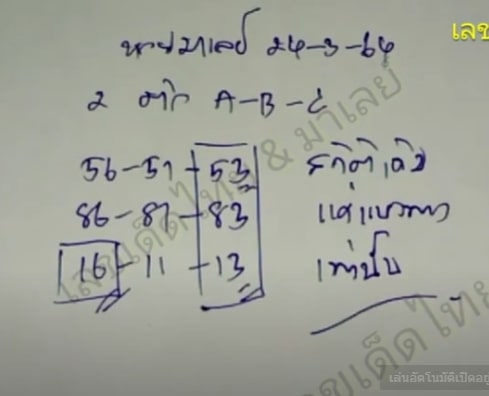 เลข
หวยมาเลย์ 24-3-64
2 ตัว A-B-C
56-51-53 สถิติเดิม
86-81-83 แค่แนวทาง
16-11-13 เท่านั้น
เลขเด็ดไทย & มาเลย์
เลขเด็ดไทย
เล่นอัตโนมัติเปิดอยู่